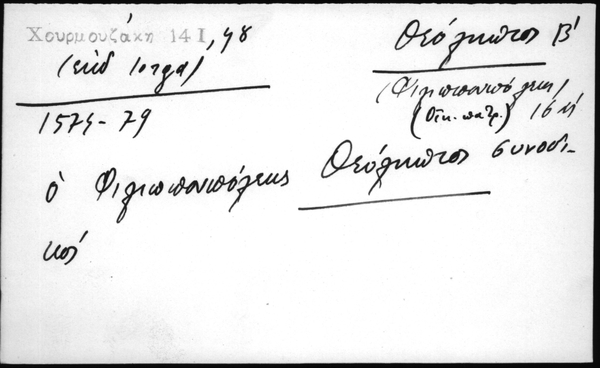 Χουρμουζάκη 14 I, 48
(εκδ Iorga)
1575-79
Θεόληπτος Β΄
(Φιλιππουπόλεως)
(Οικ. πατρ.) 16
ὁ Φιλιππουπόλεως Θεόληπτος συνοδι-
κῶς